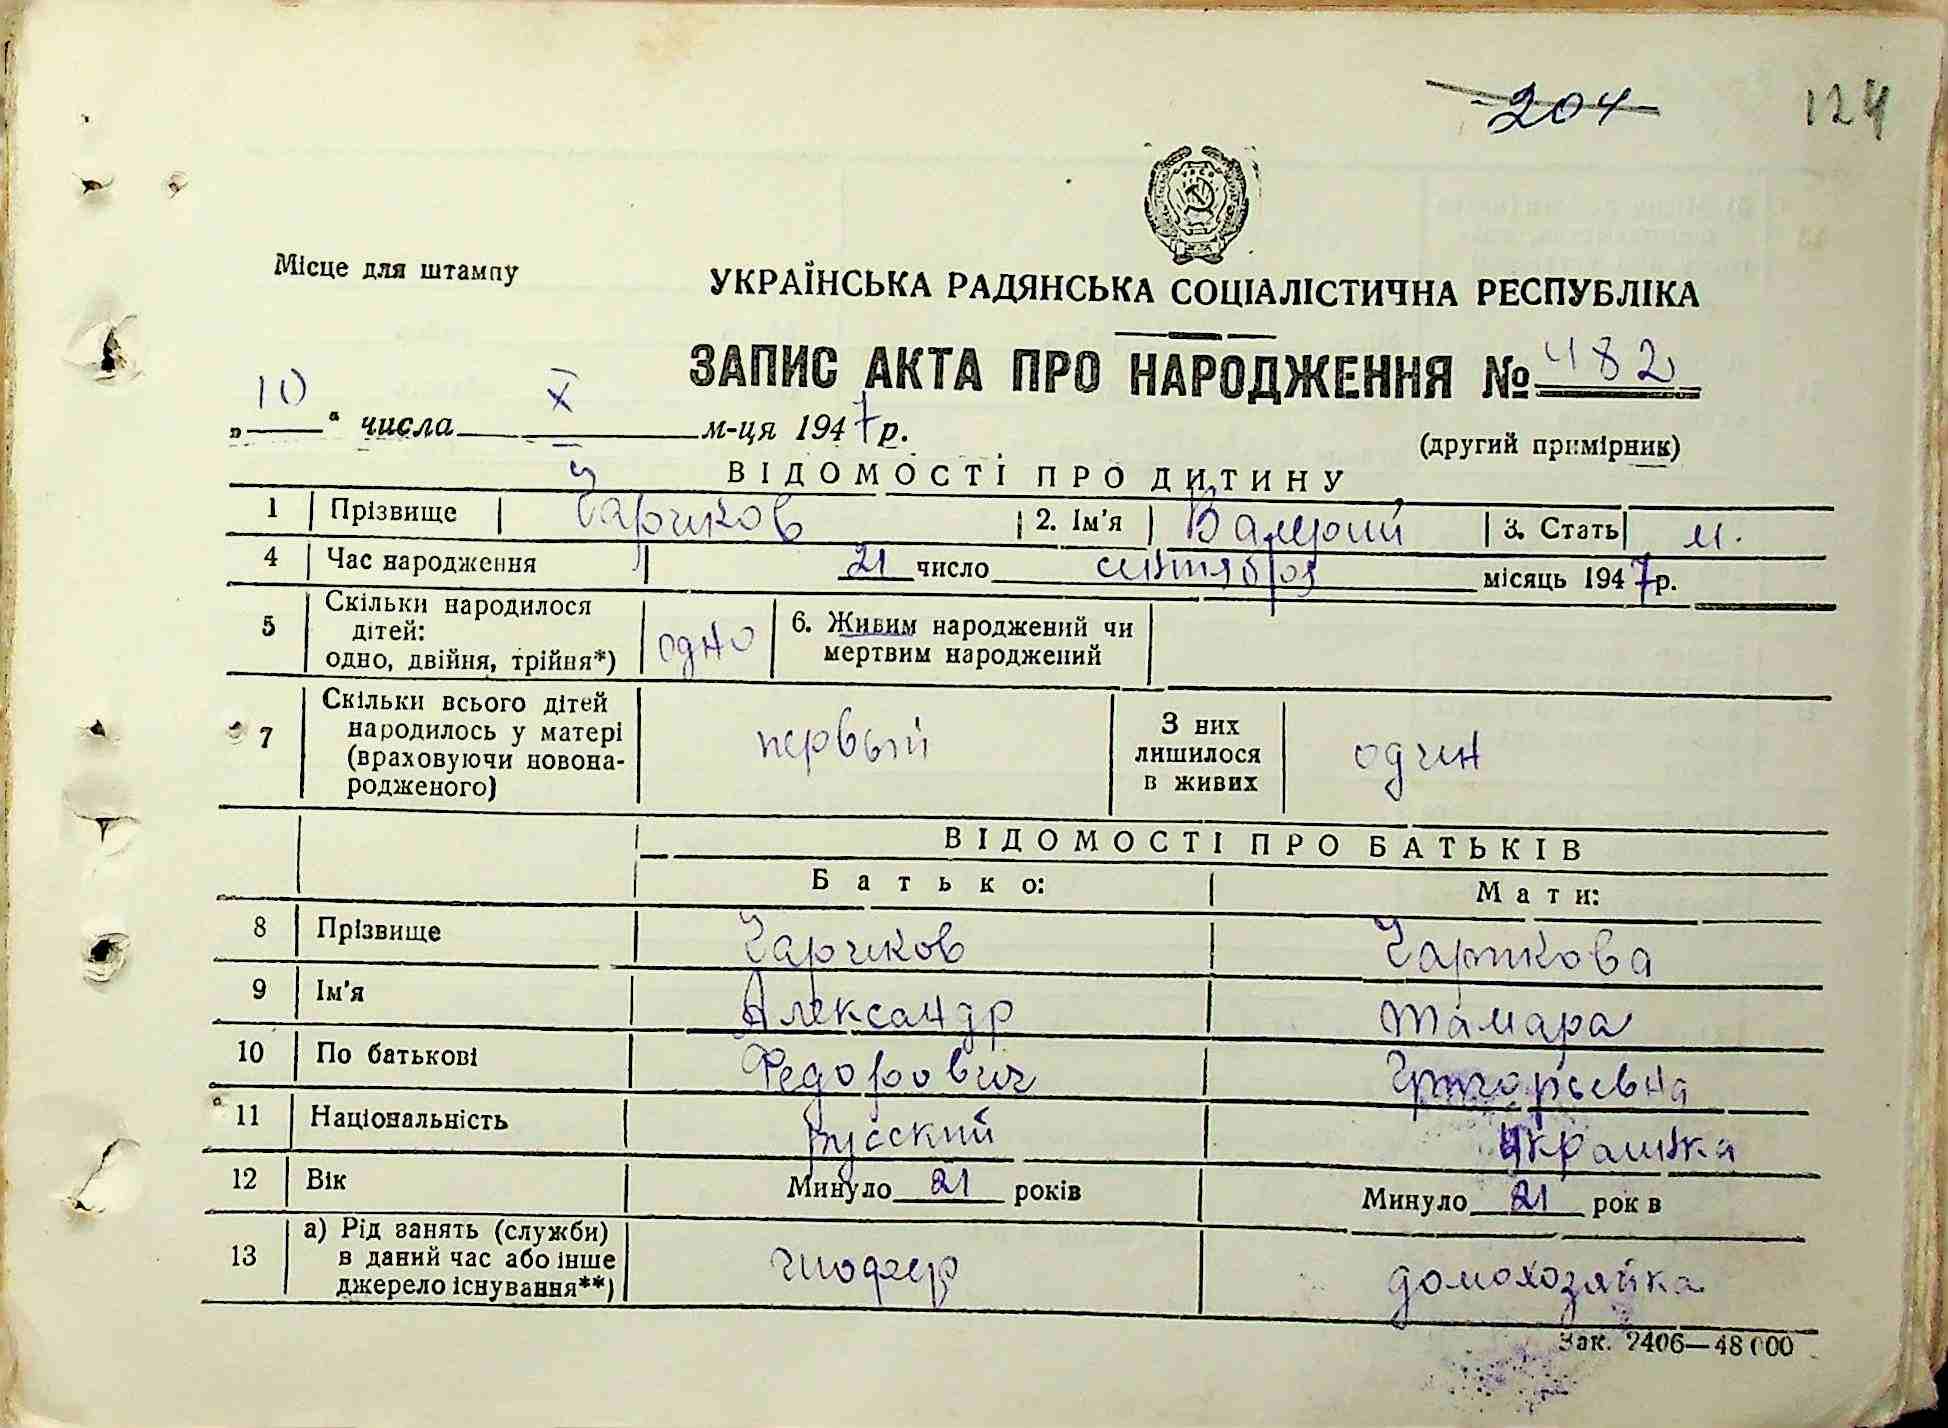 204
124
Місце для штампу
УКРАЇНСЬКА РАДЯНСЬКА СОЦІАЛІСТИЧНА РЕСПУБЛІКА
ЗАПИС АКТА ПРО НАРОДЖЕННЯ № 482
„10“ числа X м-ця 1947 р.
(другий примірник)
ВІДОМОСТІ ПРО ДИТИНУ
1 Прізвище Чариков 2. Ім'я Валерий 3. Стать м.
4 Час народження 21 число сентября місяць 1947 р.
5 Скільки народилося дітей: одно, двійня, трійня*) одно 6. Живим народжений чи мертвим народжений
7 Скільки всього дітей народилось у матері (враховуючи новонародженого) первый З них лишилося в живих один
ВІДОМОСТІ ПРО БАТЬКІВ
Батько: Мати:
8 Прізвище Чариков Чарикова
9 Ім'я Александр Тамара
10 По батькові Федорович Григорьевна
11 Національність русский украинка
12 Вік Минуло 21 років Минуло 21 рок в
13 а) Рід занять (служби) в даний час або інше джерело існування**) шофер домохозяйка
Зак. 2406—48000